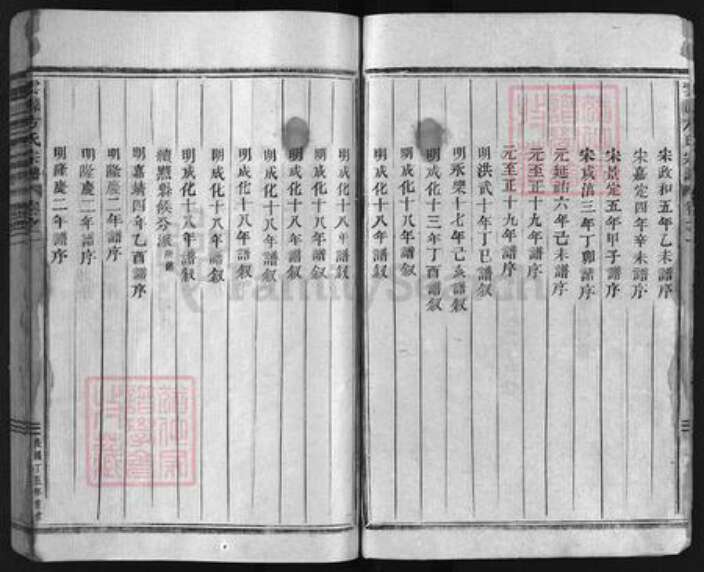 宋政和五年乙未譜序
宋嘉定四年辛未譜序
宋景定五年甲子譜序
宋咸淳三年丁卯譜序
元延祐六年己未譜序
元至正十九年譜序
元至正十九年譜序
明洪武十年丁巳譜叙
明永樂十七年己亥譜叙
明成化十三年丁酉譜叙
明成化十八年譜叙
明成化十八年譜叙
明成化十八年譜叙
明成化十八年譜叙
明成化十八年譜叙
明成化十八年譜叙
明成化十八年譜叙
明成化十八年譜叙
明成化十八年譜叙
績谿縣候分派
明嘉靖四年乙酉譜序
明隆慶二年譜序
明隆慶二年譜序
明隆慶二年譜序
FamilySearch